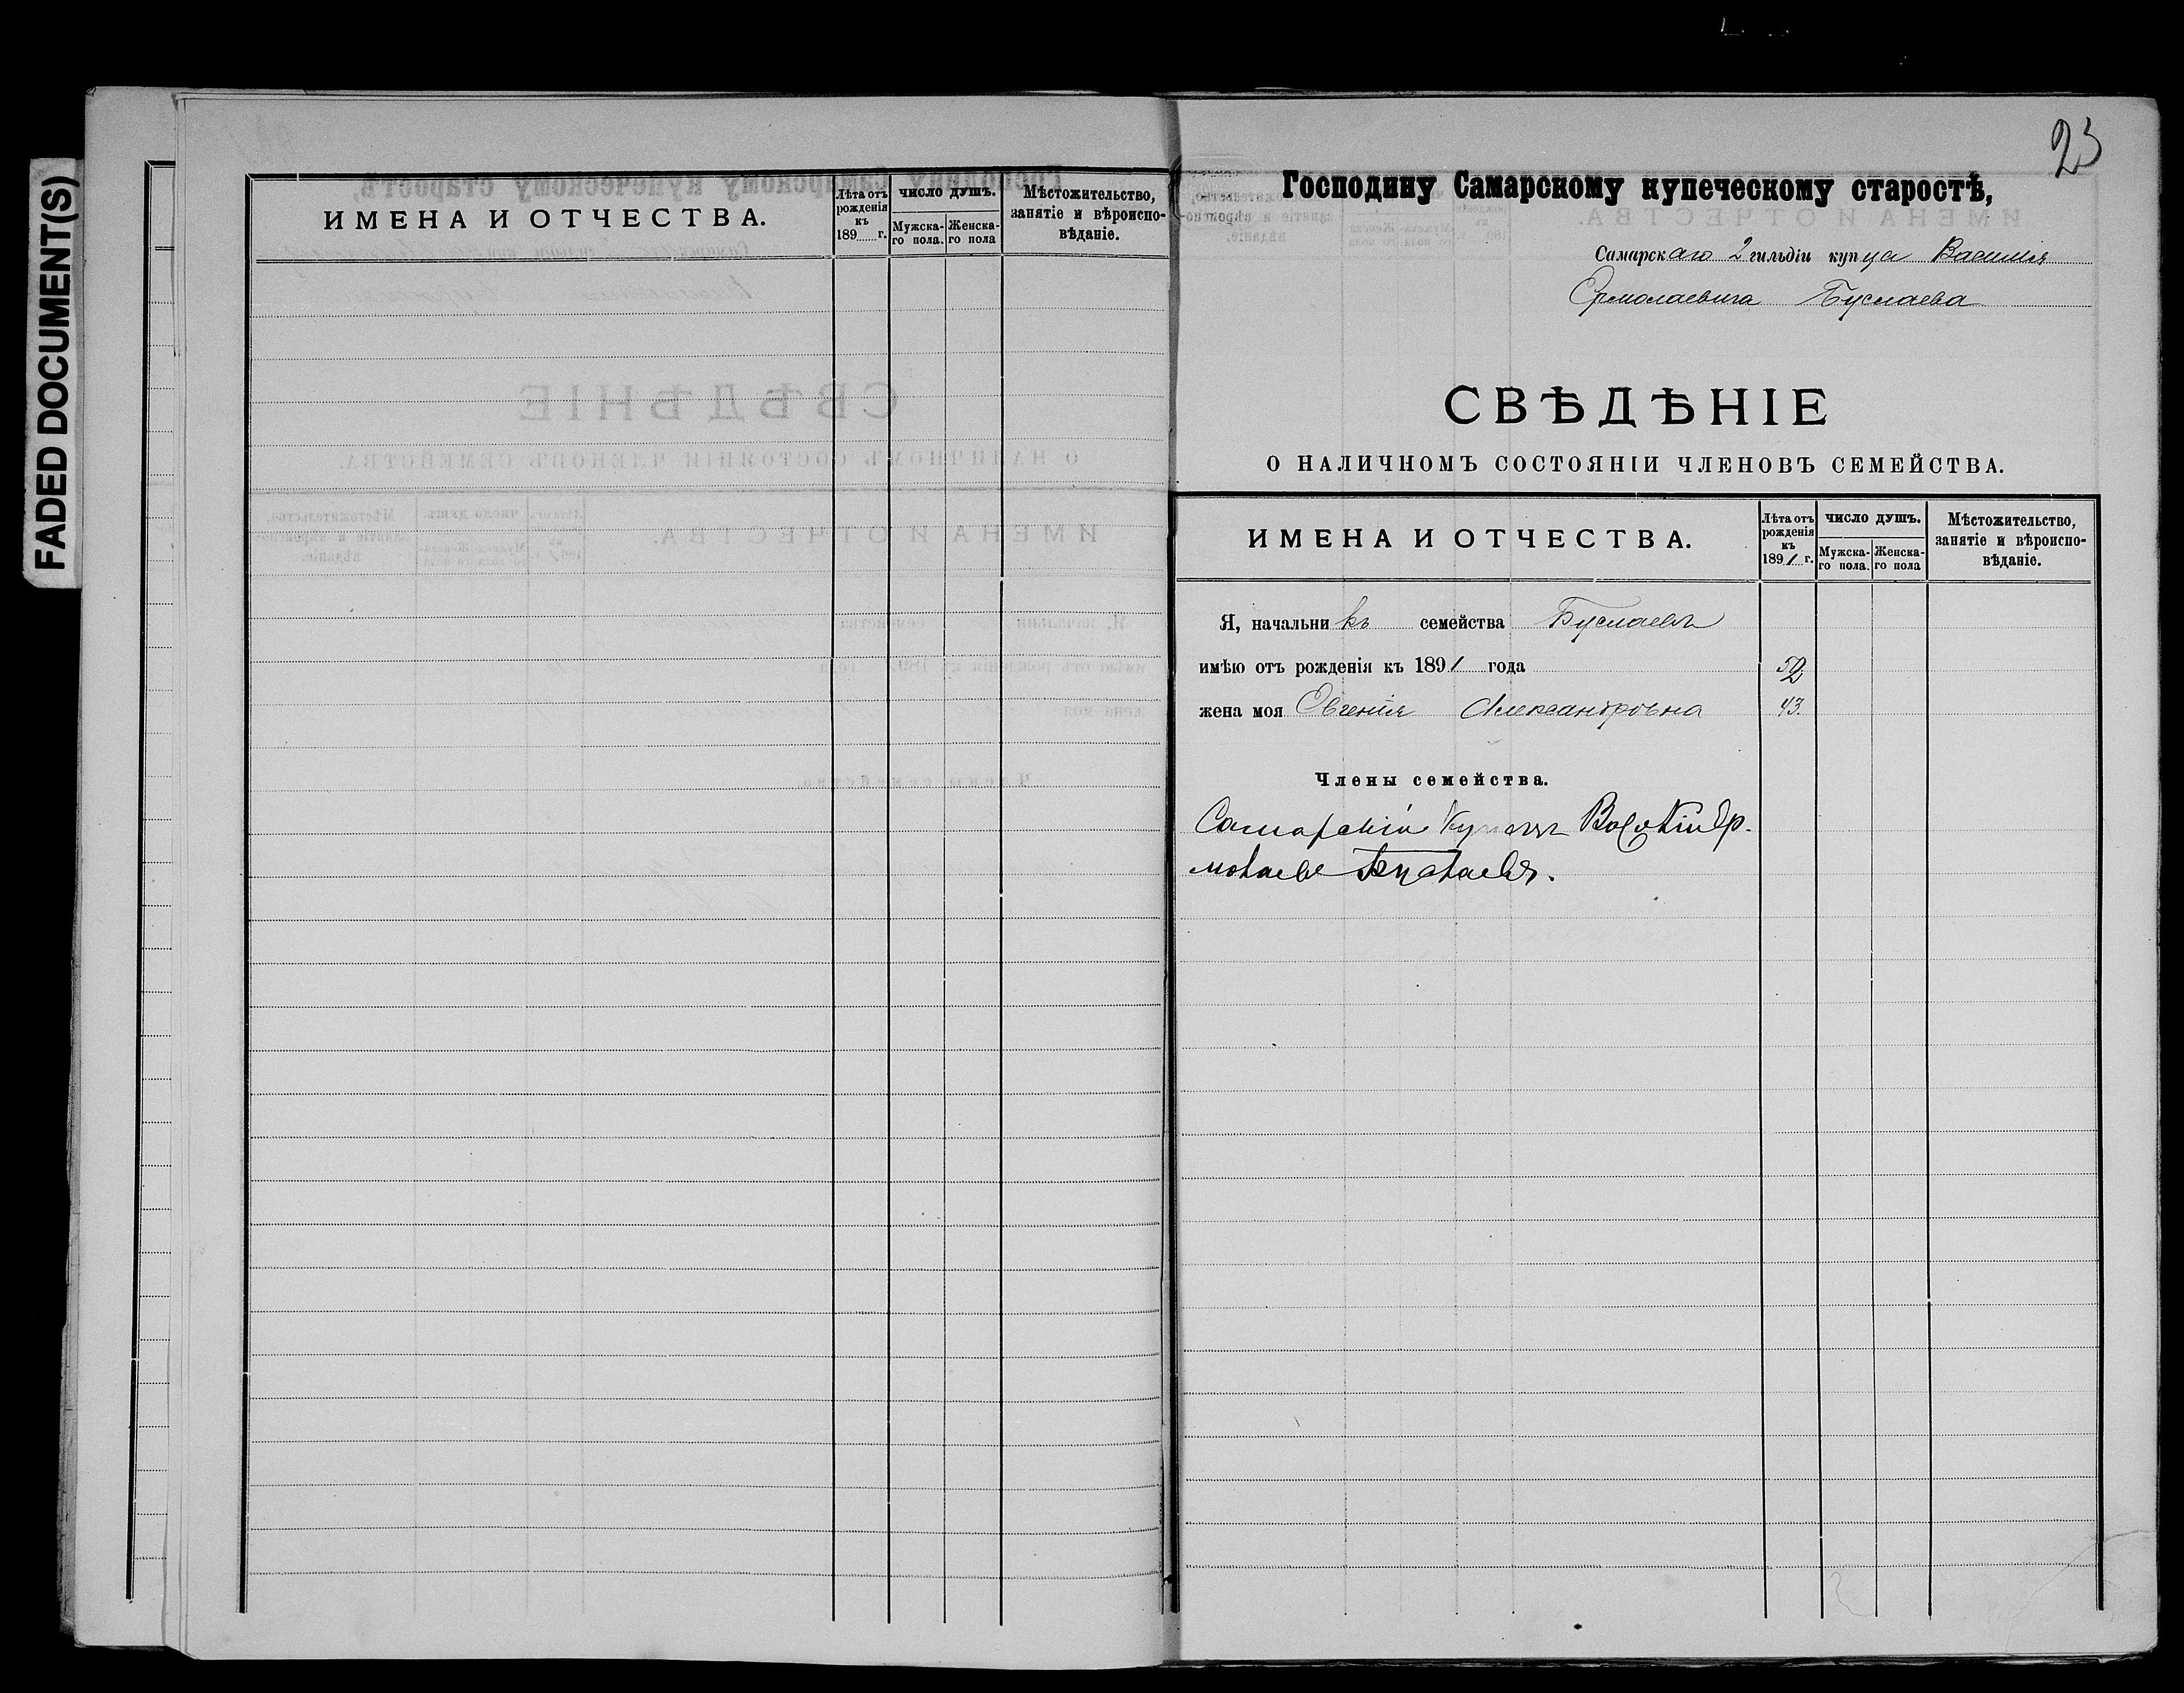 FADED DOCUMENT(S)
ИМЕНА И ОТЧЕСТВА.
Лѣта отъ рожденія къ 189 г.
ЧИСЛО ДУШЪ.
Мужска-го пола.
Женска-го пола
Мѣстожительство, занятіе и вѣроиспо-вѣданіе.
23
Господину Самарскому купеческому старостѣ,
Самарскаго 2 гильдіи купца Василія
Ермолаевича Буслаева
СВѢДѢНІЕ
О НАЛИЧНОМЪ СОСТОЯНІИ ЧЛЕНОВЪ СЕМЕЙСТВА.
ИМЕНА И ОТЧЕСТВА.
Лѣта отъ рожденія къ 1891 г.
ЧИСЛО ДУШЪ.
Мужска-го пола.
Женска-го пола
Мѣстожительство, занятіе и вѣроиспо-вѣданіе.
Я, начальникъ семейства Буслаевъ
имѣю отъ рожденія къ 1891 года
жена моя Евгенія Александровна 43.
Члены семейства.
Самарскій Купецъ Василій Ер-
молаевъ Буслаевъ.